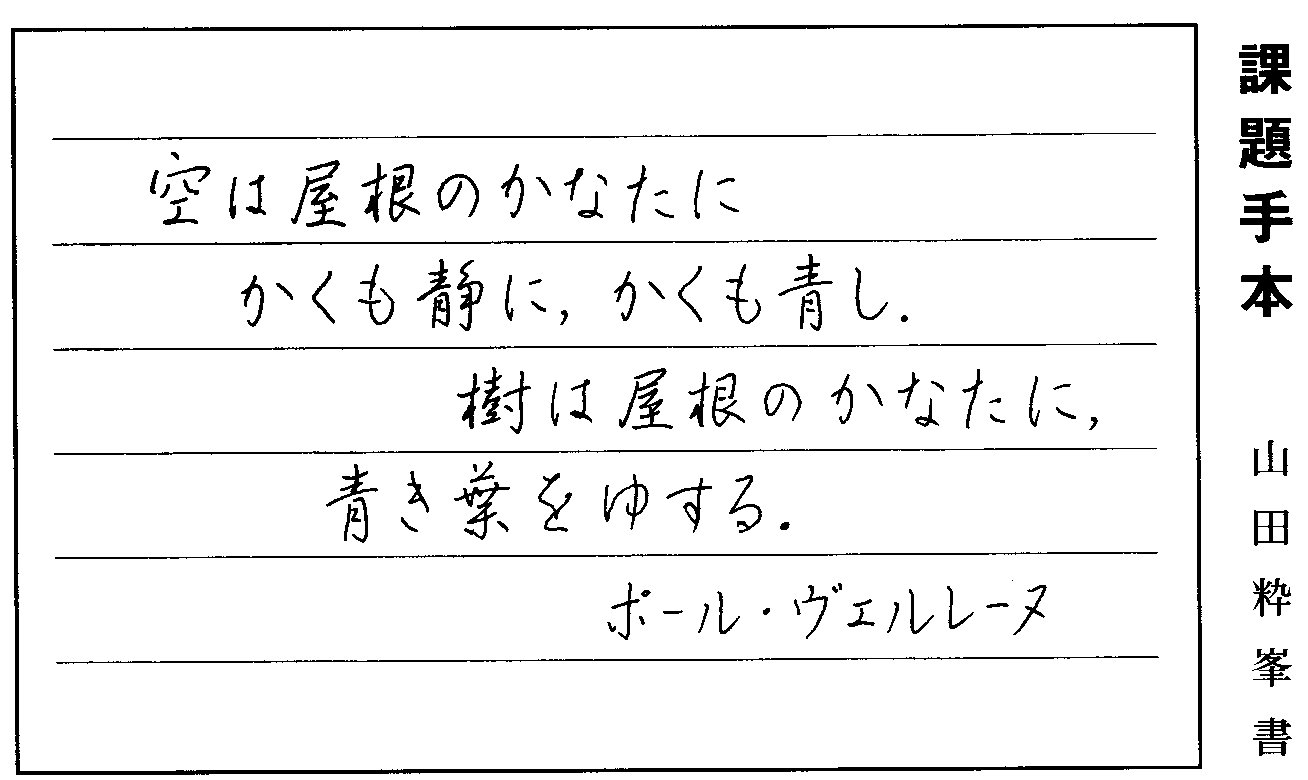 空は屋根のかなたに
かくも静に，かくも青し．
樹は屋根のかなたに，
青き葉をゆする．
ポール・ヴェルレーヌ
課題手本
山田粋峯書